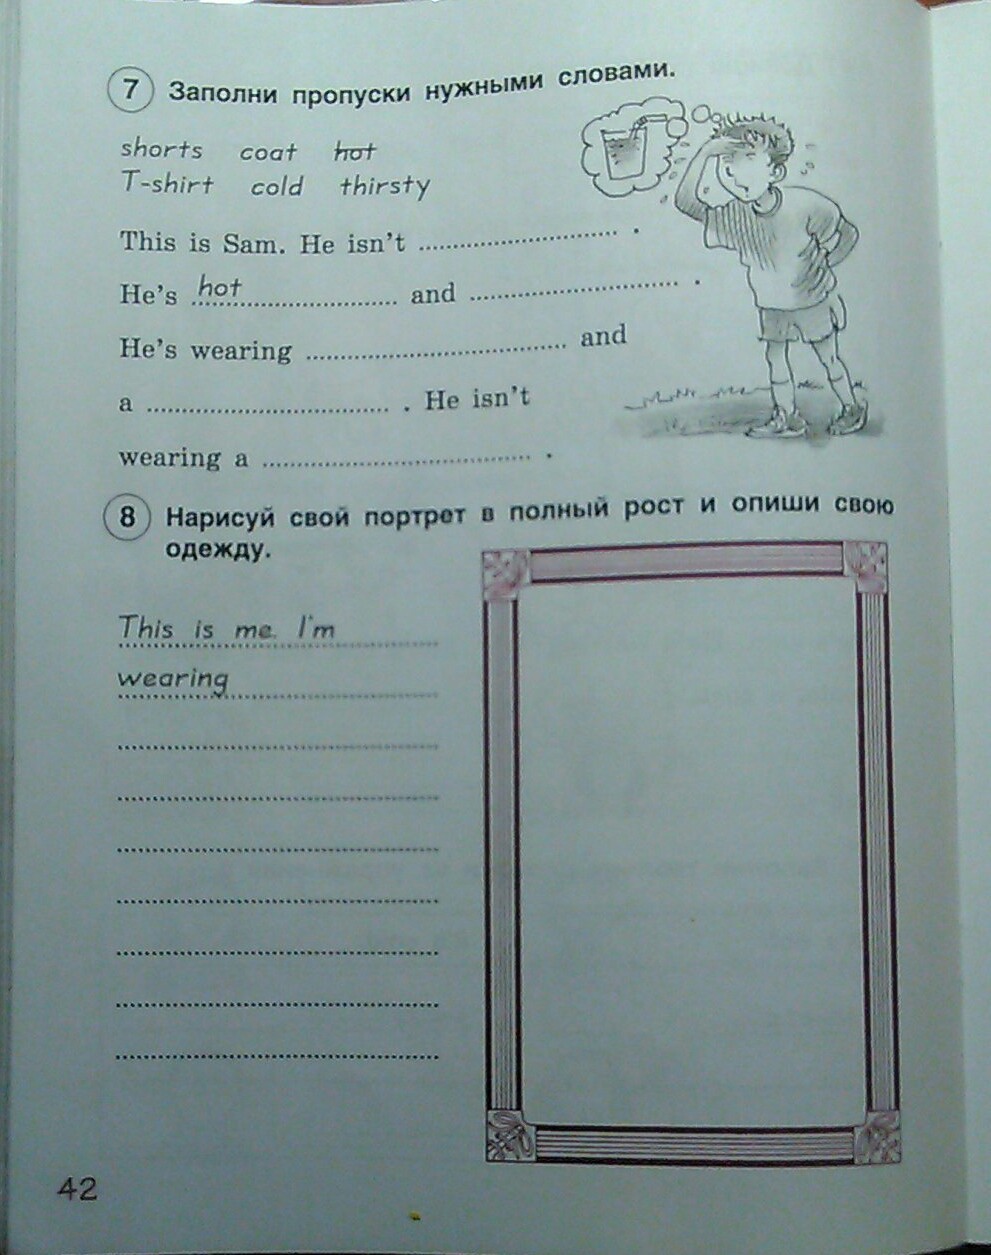 7 Заполни пропуски нужными словами.
shorts coat hot
T-shirt cold thirsty
This is Sam. He isn't .............................. .
He's hot .............................. and .............................. .
He's wearing .............................. and
a .............................. . He isn't
wearing a .............................. .
8 Нарисуй свой портрет в полный рост и опиши свою
одежду.
This is me. I'm
wearing
42